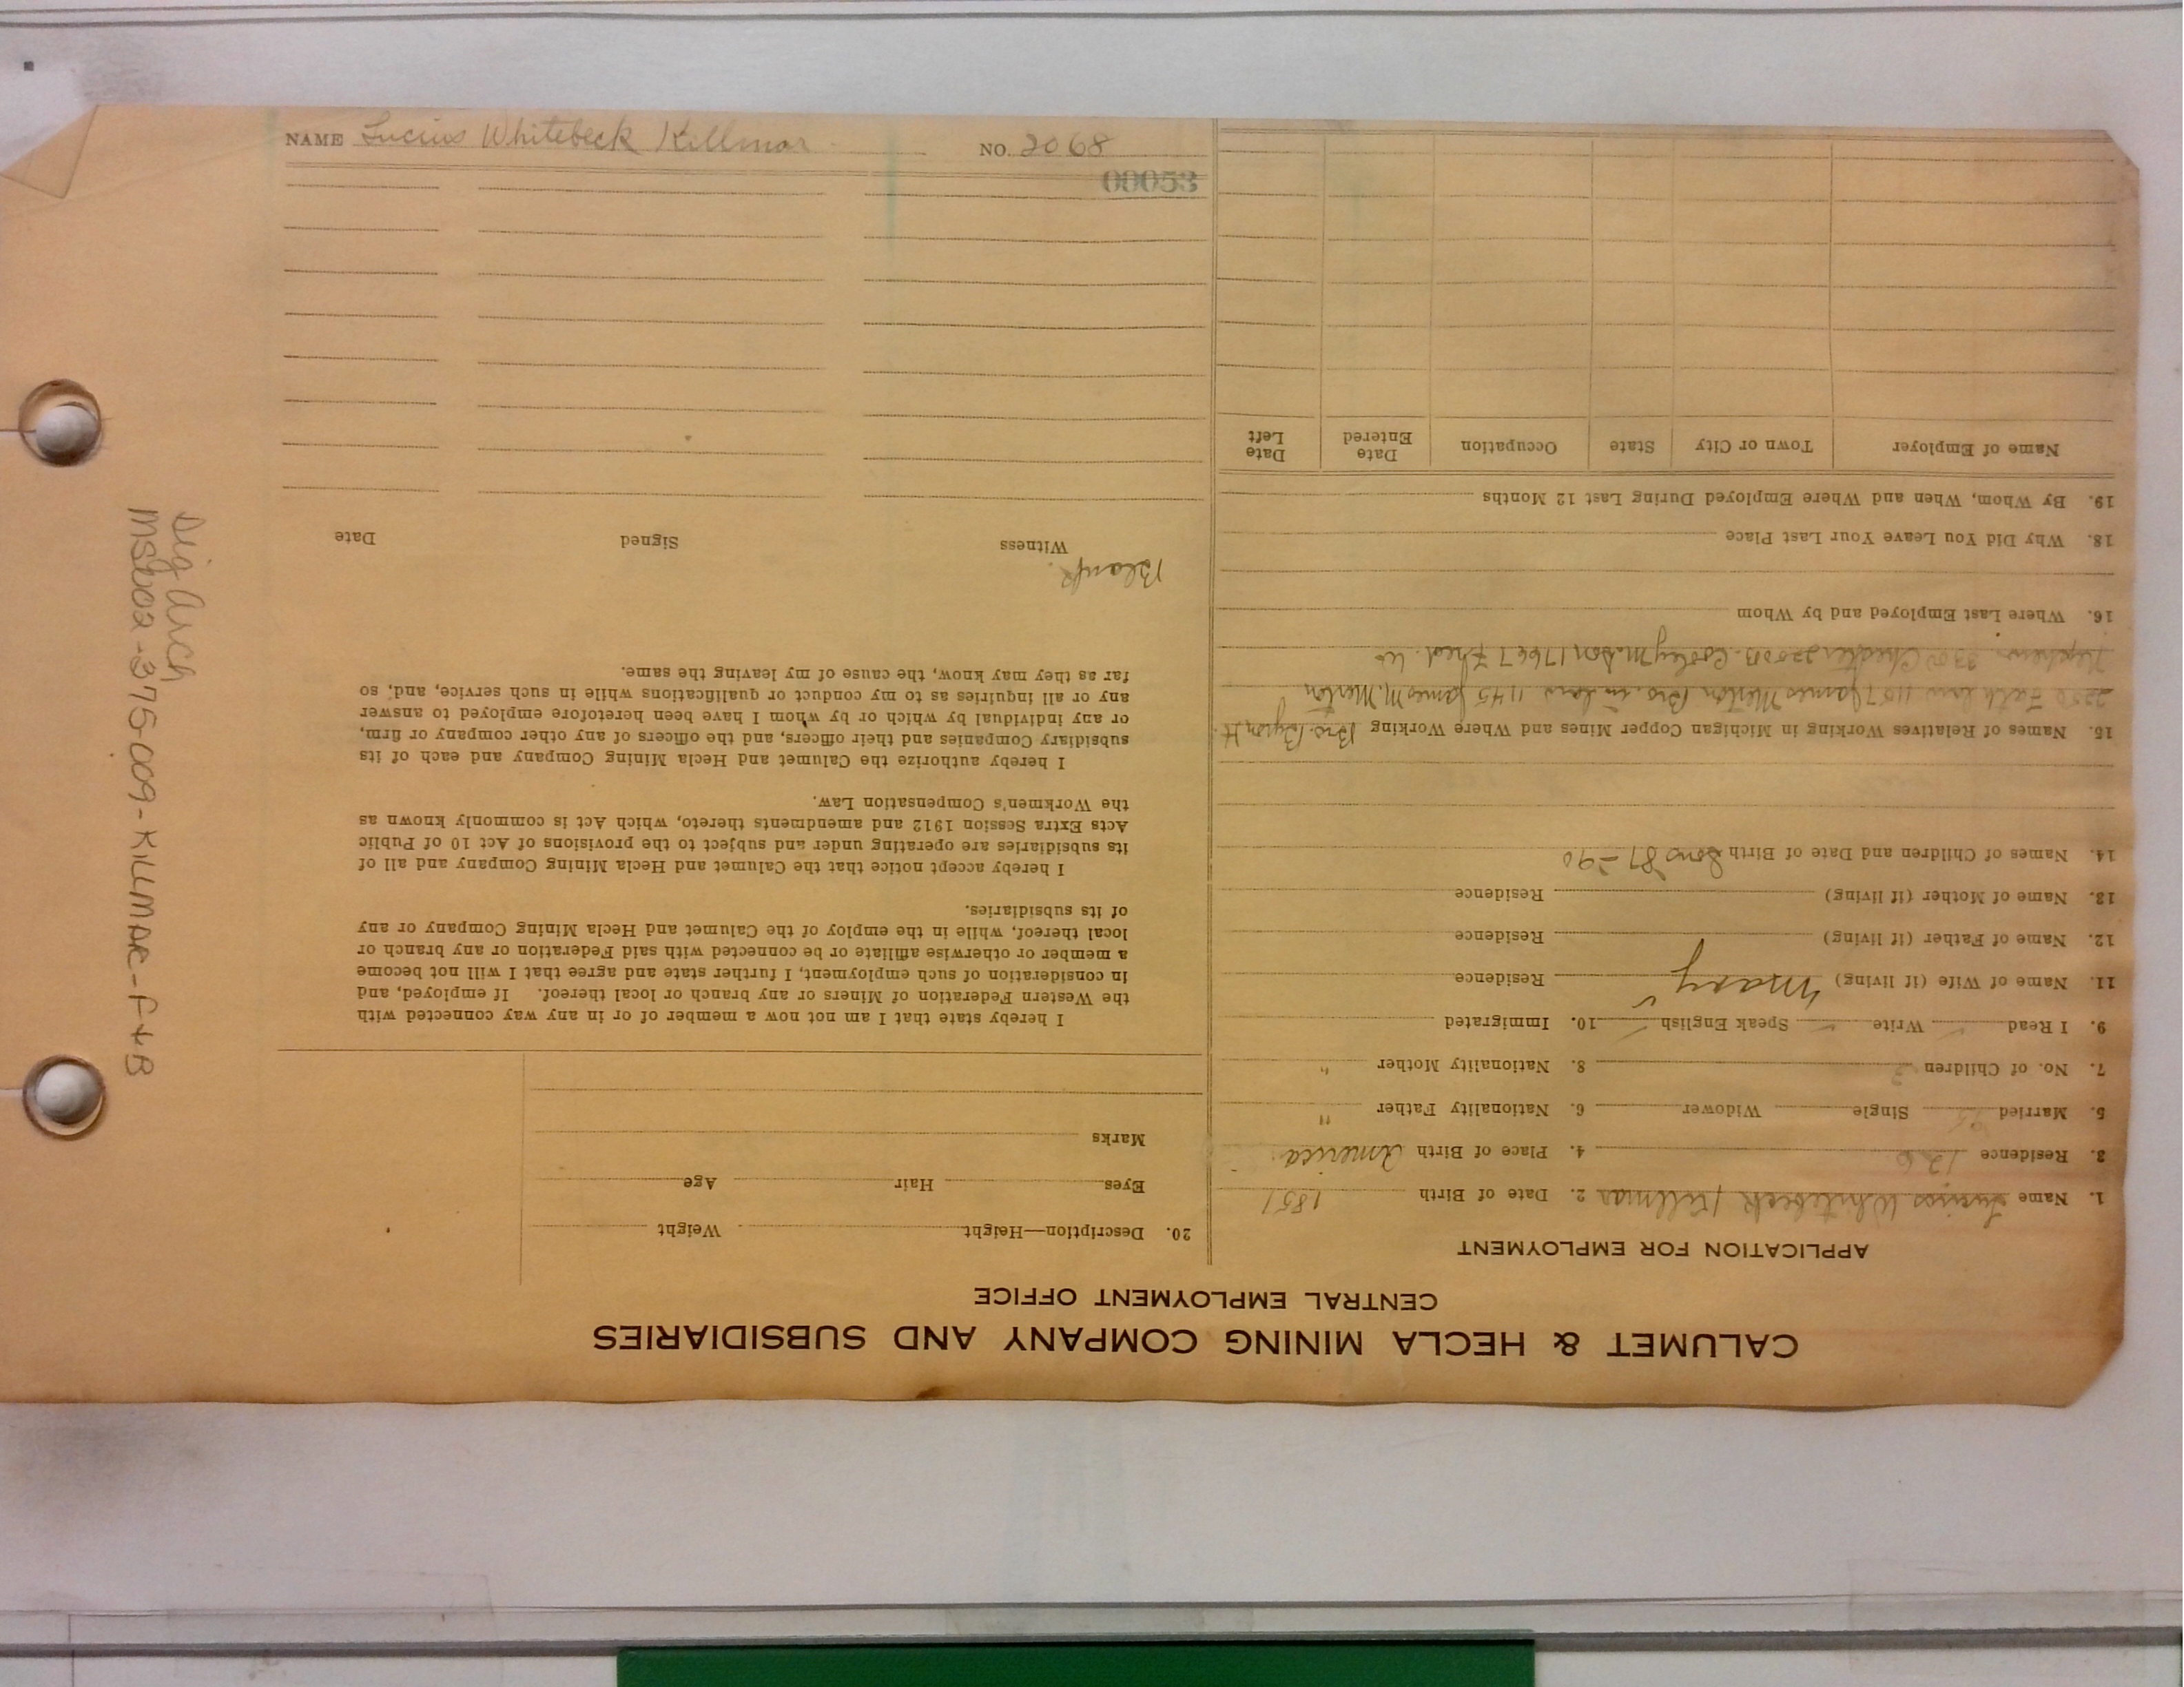 NAME Lucius Whitebeck Killmar NO. 2068
00053
Dig Arch
MS002-375-009-KILLMAR-F+B
CALUMET & HECLA MINING COMPANY AND SUBSIDIARIES
CENTRAL EMPLOYMENT OFFICE
APPLICATION FOR EMPLOYMENT
1. Name Lucius Whitebeck Killmar 2. Date of Birth 1851
3. Residence 126 4. Place of Birth America
5. Married Single Widower 6. Nationality Father "
7. No. of Children 2 8. Nationality Mother "
9. I Read ✓ Write ✓ Speak English ✓ 10. Immigrated
11. Name of Wife (if living) Mary Residence
12. Name of Father (if living) Residence
13. Name of Mother (if living) Residence
14. Names of Children and Date of Birth Sons 87-90
15. Names of Relatives Working in Michigan Copper Mines and Where Working Bro. Byron H.
2250 Fath law 1157 James Merton Bro. in law 1145 James M. Merton
Nephews. Chester 2250B. Cooley M. Son 17667 Fred. W.
16. Where Last Employed and by Whom
18. Why Did You Leave Your Last Place
19. By Whom, When and Where Employed During Last 12 Months
Name of Employer Town or City State Occupation Date Entered Date Left
20. Description—Height Weight
Eyes Hair Age
Marks
I hereby state that I am not now a member of or in any way connected with
the Western Federation of Miners or any branch or local thereof. If employed, and
in consideration of such employment, I further state and agree that I will not become
a member or otherwise affiliate or be connected with said Federation or any branch or
local thereof, while in the employ of the Calumet and Hecla Mining Company or any
of its subsidiaries.
I hereby accept notice that the Calumet and Hecla Mining Company and all of
its subsidiaries are operating under and subject to the provisions of Act 10 of Public
Acts Extra Session 1912 and amendments thereto, which Act is commonly known as
the Workmen's Compensation Law.
I hereby authorize the Calumet and Hecla Mining Company and each of its
subsidiary Companies and their officers, and the officers of any other company or firm,
or any individual by which or by whom I have been heretofore employed to answer
any or all inquiries as to my conduct or qualifications while in such service, and, so
far as they may know, the cause of my leaving the same.
Blank.
Witness Signed Date